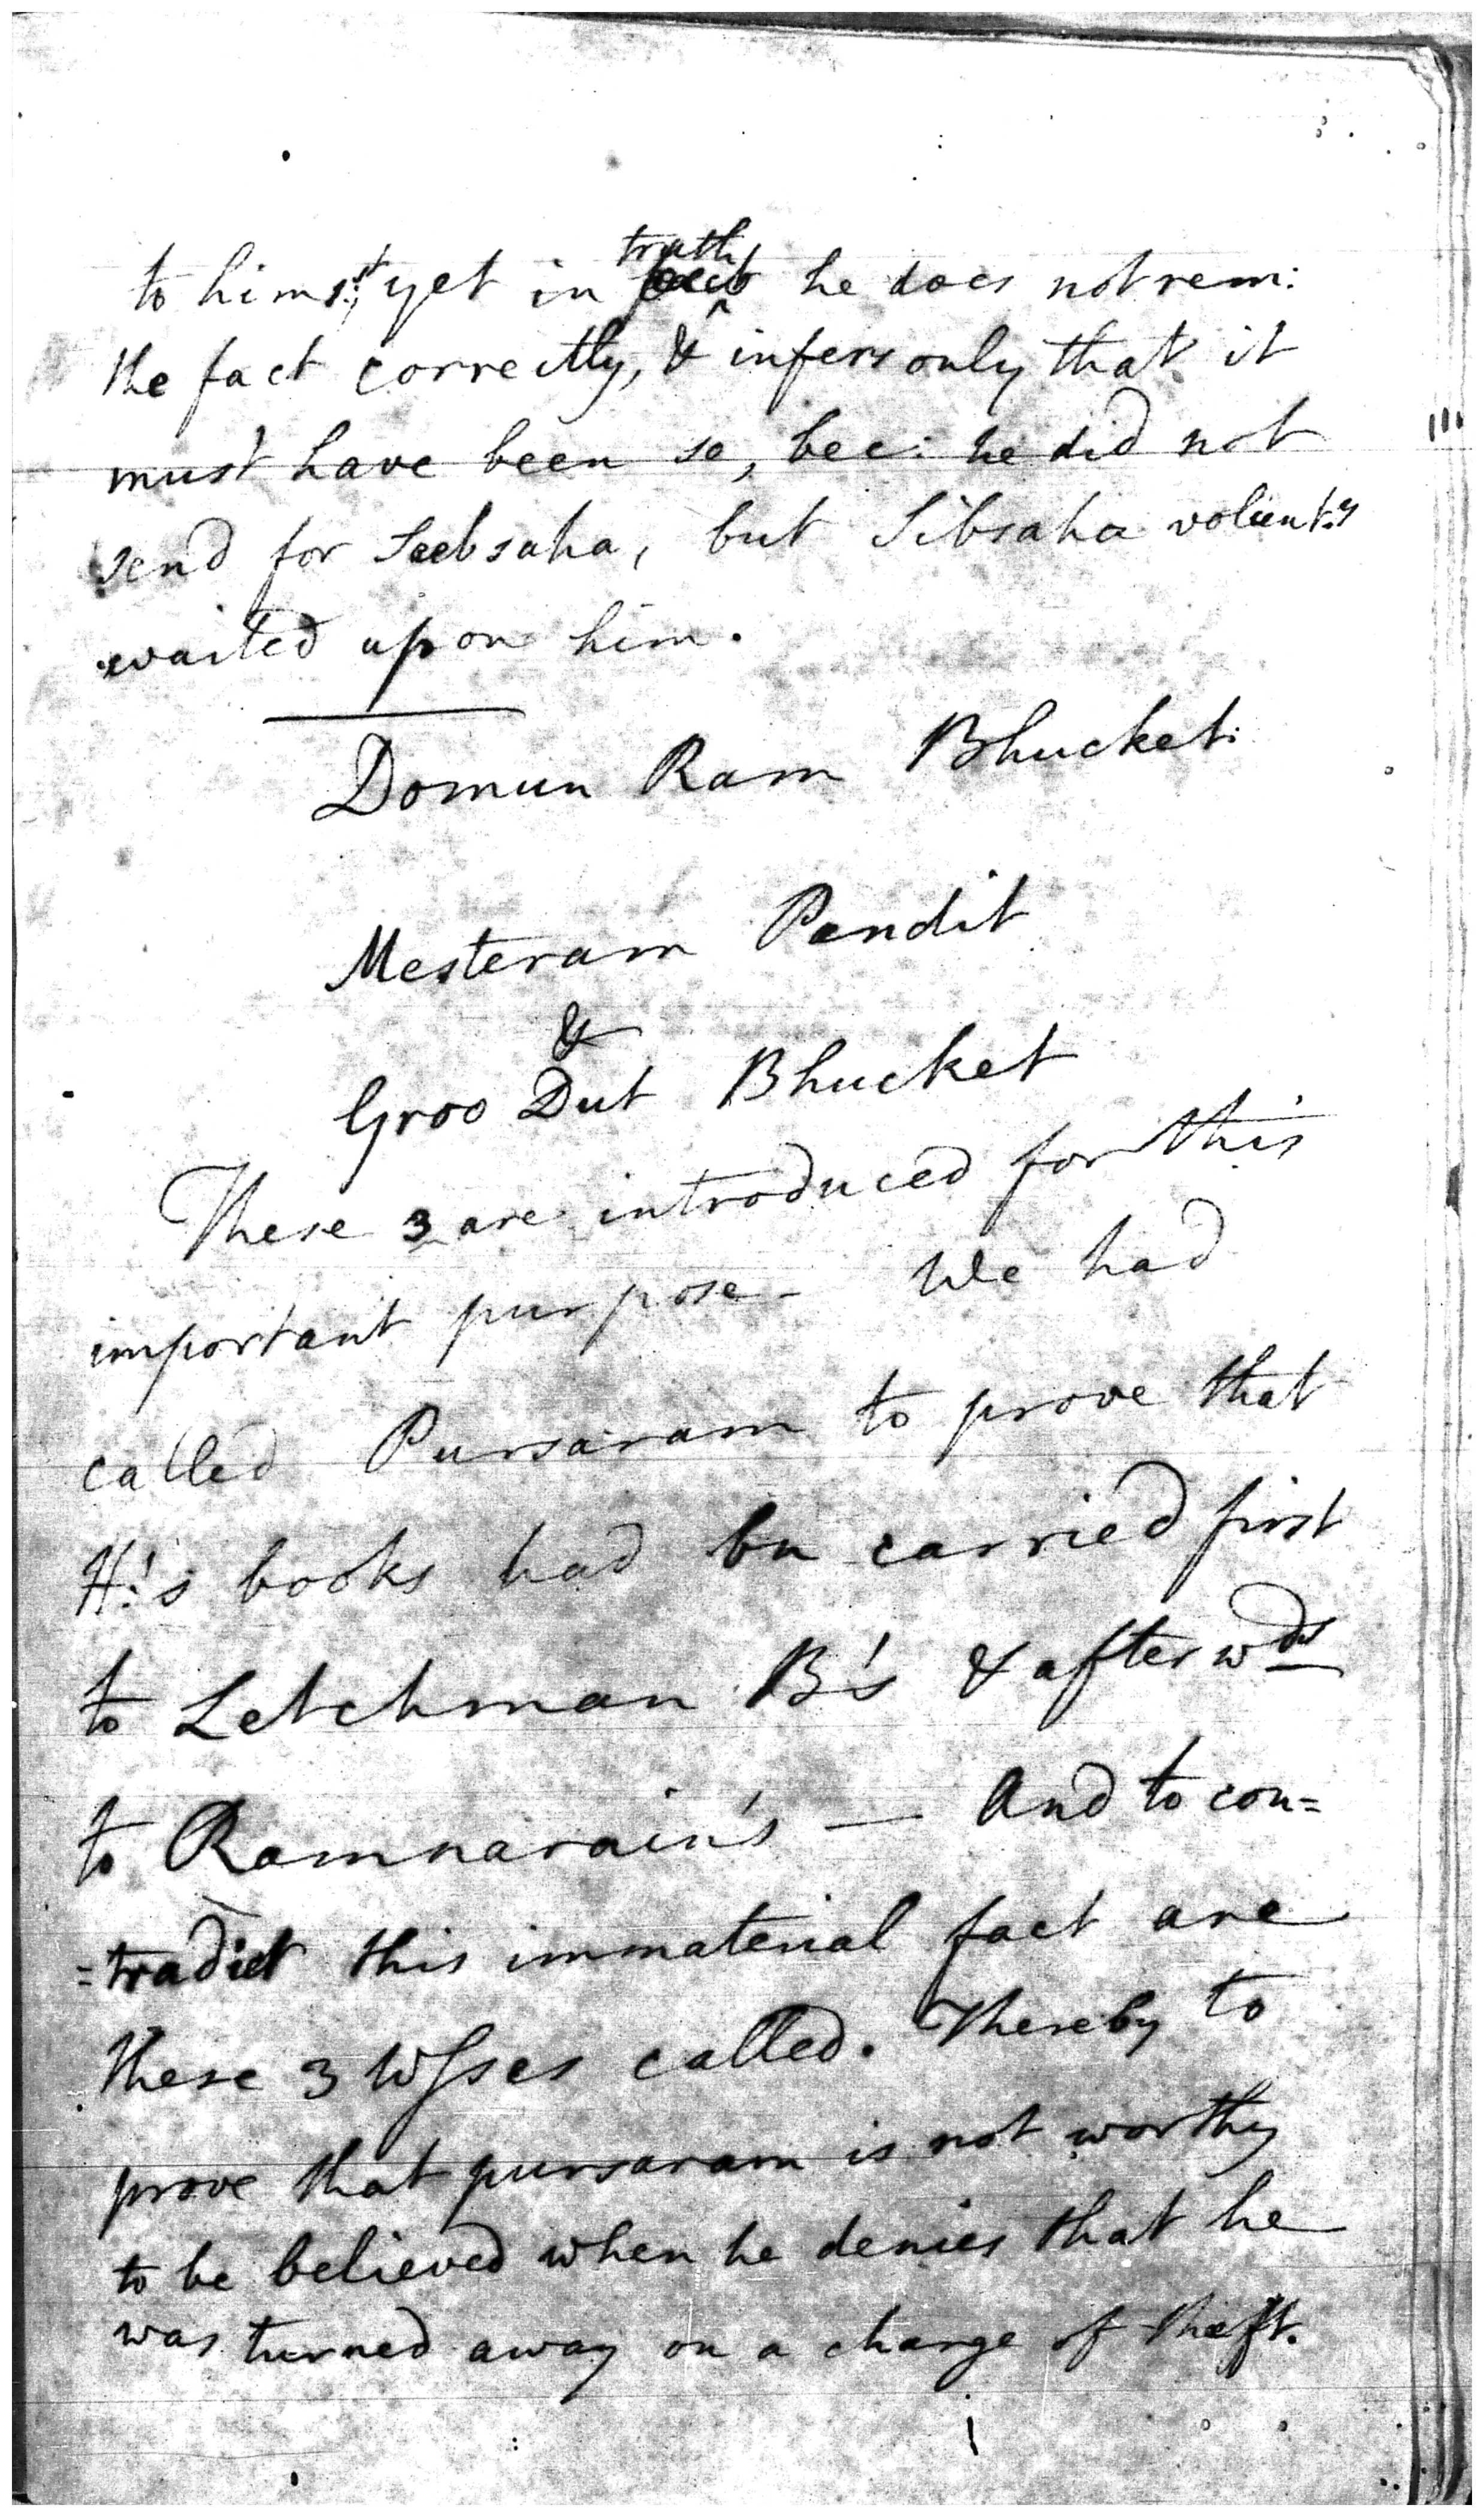 to him, yet in truth he does not rem:
the fact correctly, & infers only that it
must have been so, bec: he did not
send for Seebsaha, but Sibsaha volunt:y
waited upon him.
Domun Ram Bhucket.
Mesteram Pandit
&
Groo Dut Bhucket
These 3 are introduced for this
important purpose - We had
called Pursaram to prove that
H:'s books had bn carried first
to Letchman B's & afterwds
to Ramnarain's — And to con=
=tradict this immaterial fact are
these 3 Wsses called. Thereby to
prove that pursaram is not worthy
to be believed when he denies that he
was turned away on a charge of theft.